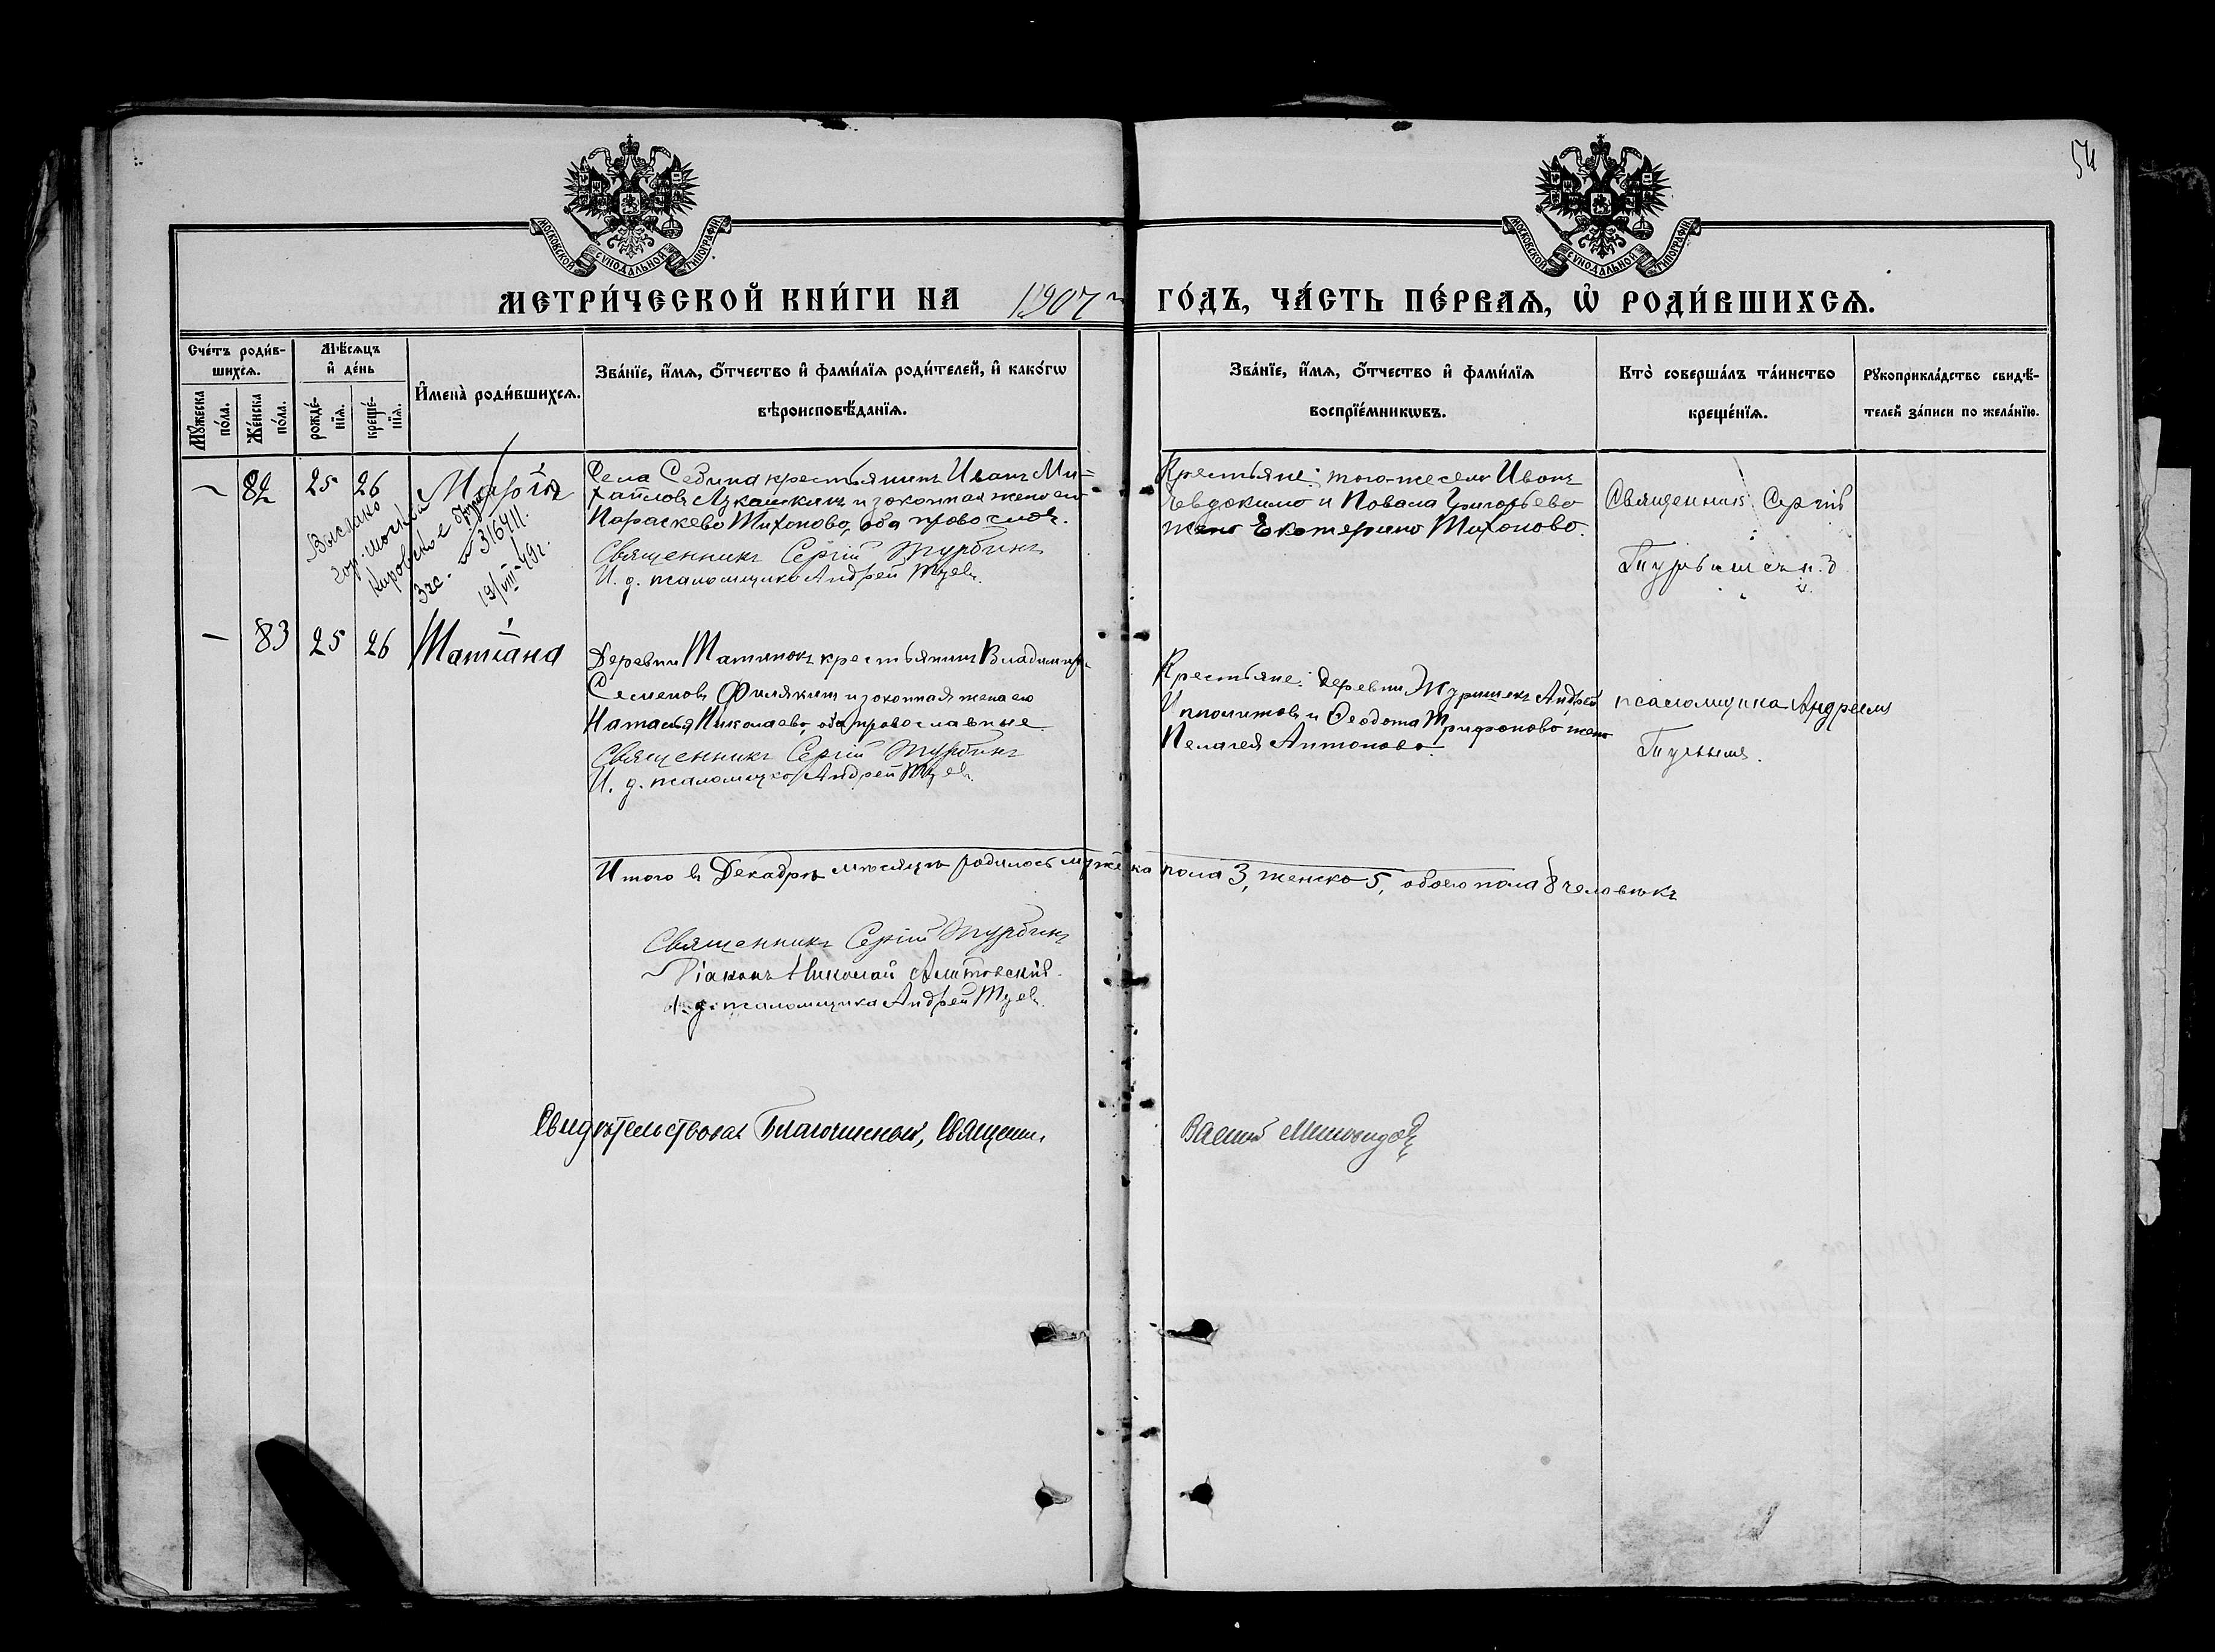 54
МОСКОВСКОЙ СѴНОДАЛЬНОЙ ТИПОГРАФІИ
МОСКОВСКОЙ СѴНОДАЛЬНОЙ ТИПОГРАФІИ
МЕТРИ́ЧЕСКОЙ КНИ́ГИ НА 1907 ГО́ДЪ, ЧА́СТЬ ПЕ́РВАѦ, Ѡ҆ РОДИ́ВШИХСѦ.
Сче́тъ роди́в-
шихсѧ.
Мѹ́жеска по́ла.
Же́нска по́ла.
Мѣ́сѧцъ
и҆ де́нь
рожде́-
нїѧ.
креще́-
нїѧ.
И҆мена̀ роди́вшихсѧ.
Зва́нїе, и҆́мѧ, ѻ҆́тчество и҆ фами́лїѧ роди́телей, и҆ како́гѡ
вѣроисповѣ́данїѧ.
Зва́нїе, и҆́мѧ, ѻ҆́тчество и҆ фами́лїѧ
воспрїе́мникѡвъ.
Кто̀ соверша́лъ та́инство
креще́нїѧ.
Рѹкоприкла́дство свидѣ́-
телей за́писи по жела́нїю.
— 82 25 26 Марѳа
Села Седина крестьянинъ Иванъ Ми=
хаиловъ Лукашкинъ и законная жена его
Параскева Тихонова, оба правослов.
Священникъ Сергій Турбинъ
И. д. псаломщика Андрей Туевъ.
Крестьяне: того-же села Иванъ
Евдокимо и Павала Григорьева
жена Екатерина Тихонова.
Священникъ Сергій
Турбинъ
Выслано
гор. Москва
Кировское
Загс.
316411.
19/VIII-49г.
— 83 25 26 Татіана
Деревни Татинокъ крестьянинъ Владимиръ
Семеновъ Филякинъ и законная жена его
Наталья Николаева, оба православные
Священникъ Сергій Турбинъ
И. д. псаломщика Андрей Туевъ.
Крестьяне: деревни Журишекъ Андрей
Ипполитовъ и Ѳеодота Трифонова жена
Пелагея Антонова.
псаломщика Андреемъ
Туевымъ.
Итого въ Декабрѣ мѣсяцѣ родилось мужеска пола 3, женска 5, обоего пола 8 человѣкъ
Священникъ Сергій Турбинъ
Діаконъ Николай
И. д. псаломщика Андрей Туевъ.
Свидѣтельствовалъ Благочинный, Священн. Василій